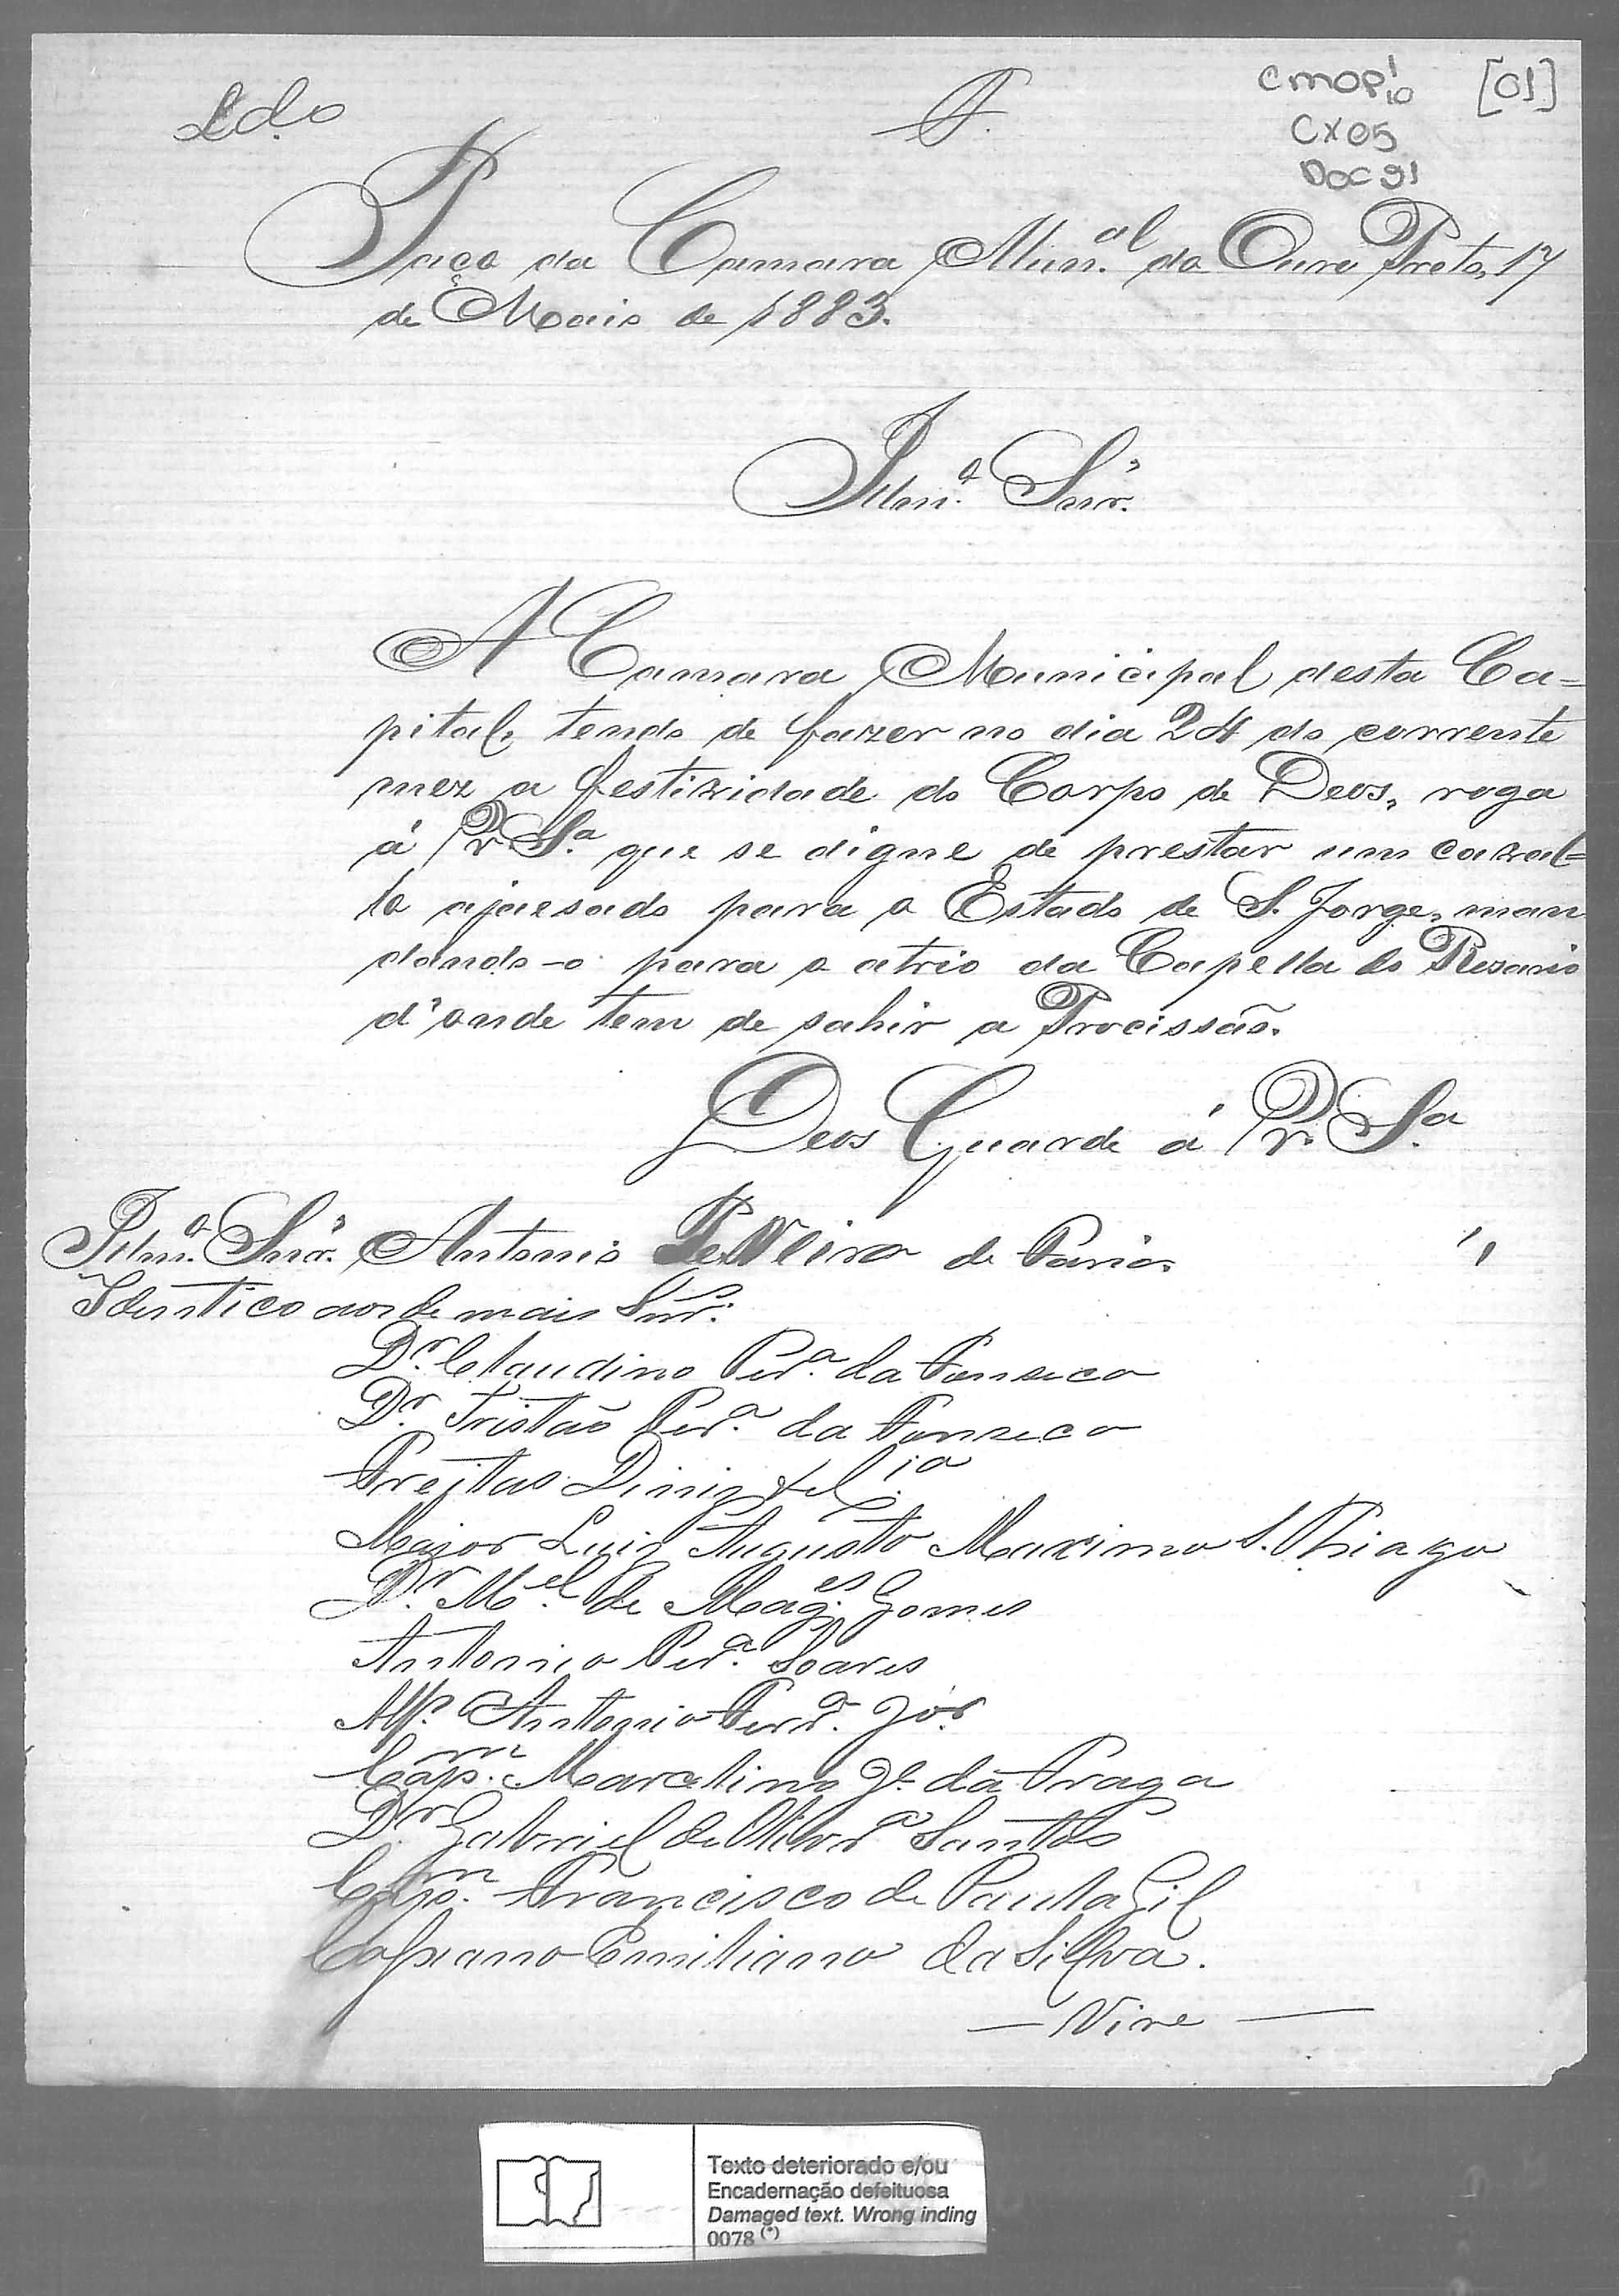 Ld.o
CMOP 1/10 [01]
CX 05
DOC 91
Paço da Camara Mun.al do Ouro Preto, 17
de Maio de 1883.
Illm.o Snr.
A Camara Municipal desta Ca=
pital, tendo de fazer no dia 24 do corrente
mez a festividade do Corpo de Deos, roga
á V. S.a que se digne de prestar um caval=
lo ajaesado para o Estado de S. Jorge, man
dando-o para o atrio da Capella do Rosario
d'onde tem de sahir a Procissão.
Deos Guarde á V. S.a
Illm.o Snr. Antonio de Faria.
Identico aos de mais Snr.s
D.r Claudino Per.a da Fonseca
D.r Tristão Per.a da Fonseca
Freitas Diniz & C.ia
Major Luiz Augusto Maximo S. Thiago
D.r M.el de Mag.es Gomes
Antonio Per.a Soares
Alf.s Antonio Ferr.a
Cap.m Marcelino J.e da Fraga
D.r Gabriel de Olivr.a Santos
Cap.m Francisco de Paula Gil
Emiliano da Silva.
— Vire —
Texto deteriorado e/ou
Encadernação defeituosa
Damaged text. Wrong inding
0078 (*)